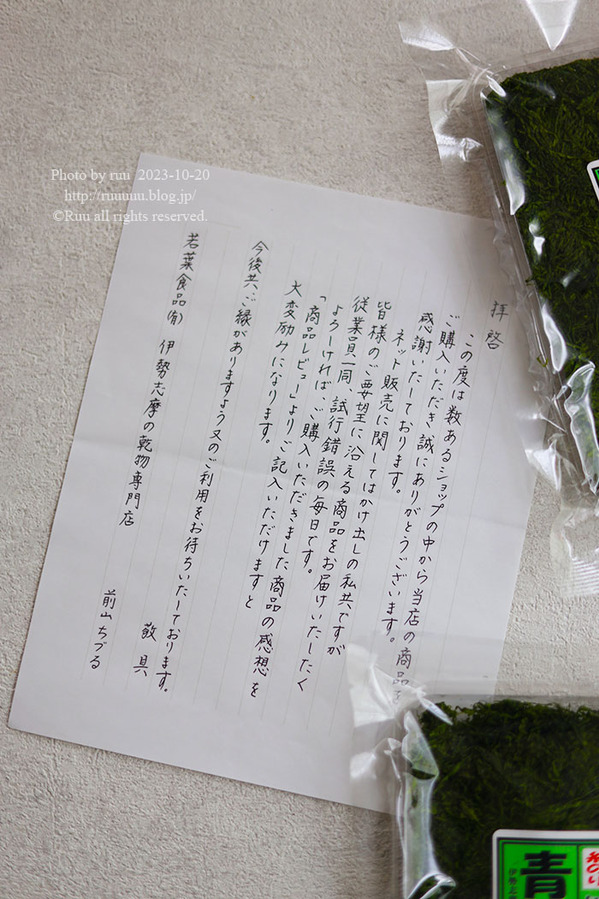 Photo by ruu 2023-10-20
http://ruuuuu.blog.jp/
©Ruu all rights reserved.
拝啓
この度は数あるショップの中から当店の商品を
ご購入いただき誠にありがとうございます。
感謝いたしております。
ネット販売に関してはかけ出しの私共ですが
皆様のご要望に沿える商品をお届けいたしたく
従業員一同、試行錯誤の毎日です。
よろしければ、ご購入いただきました商品の感想を
「商品レビュー」よりご記入いただけますと
大変励みになります。
今後共、ご縁がありますよう又のご利用をお待ちいたしております。
敬具
若葉食品㈲ 伊勢志摩の乾物専門店
前山ちづる
糸のり
青